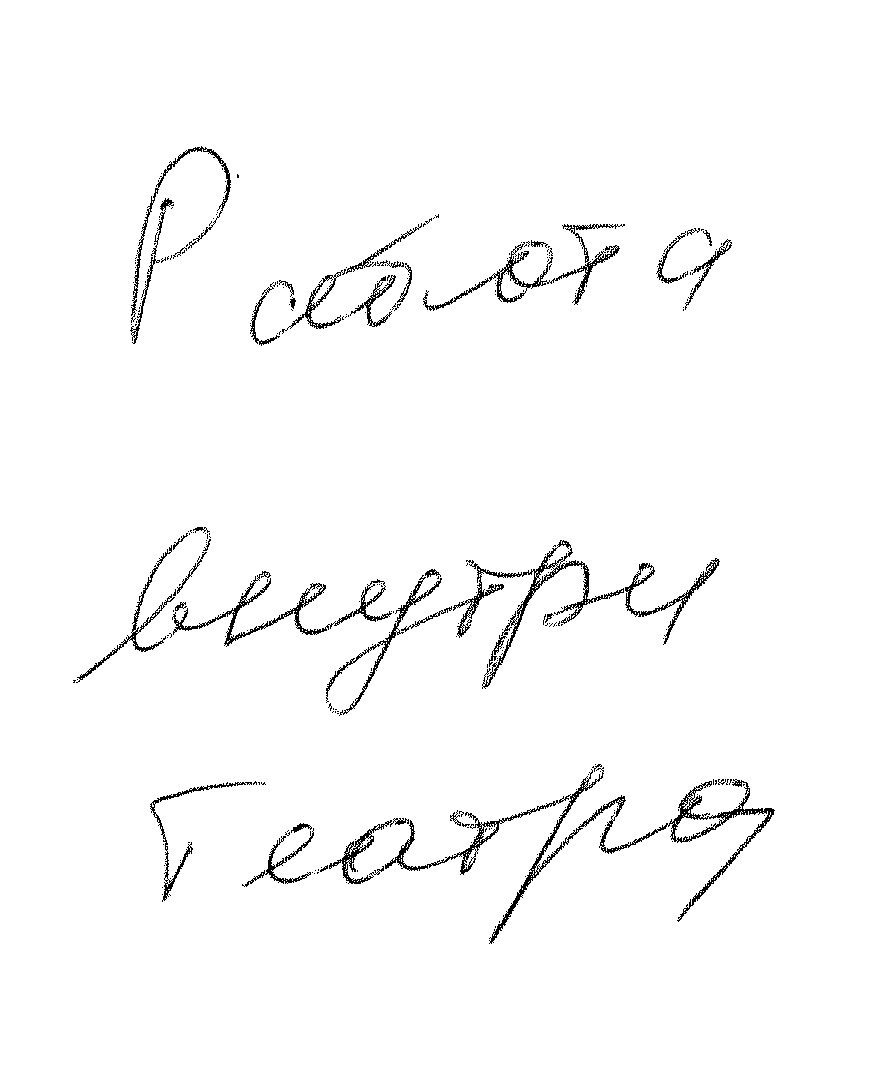 Работа
внутри
театра